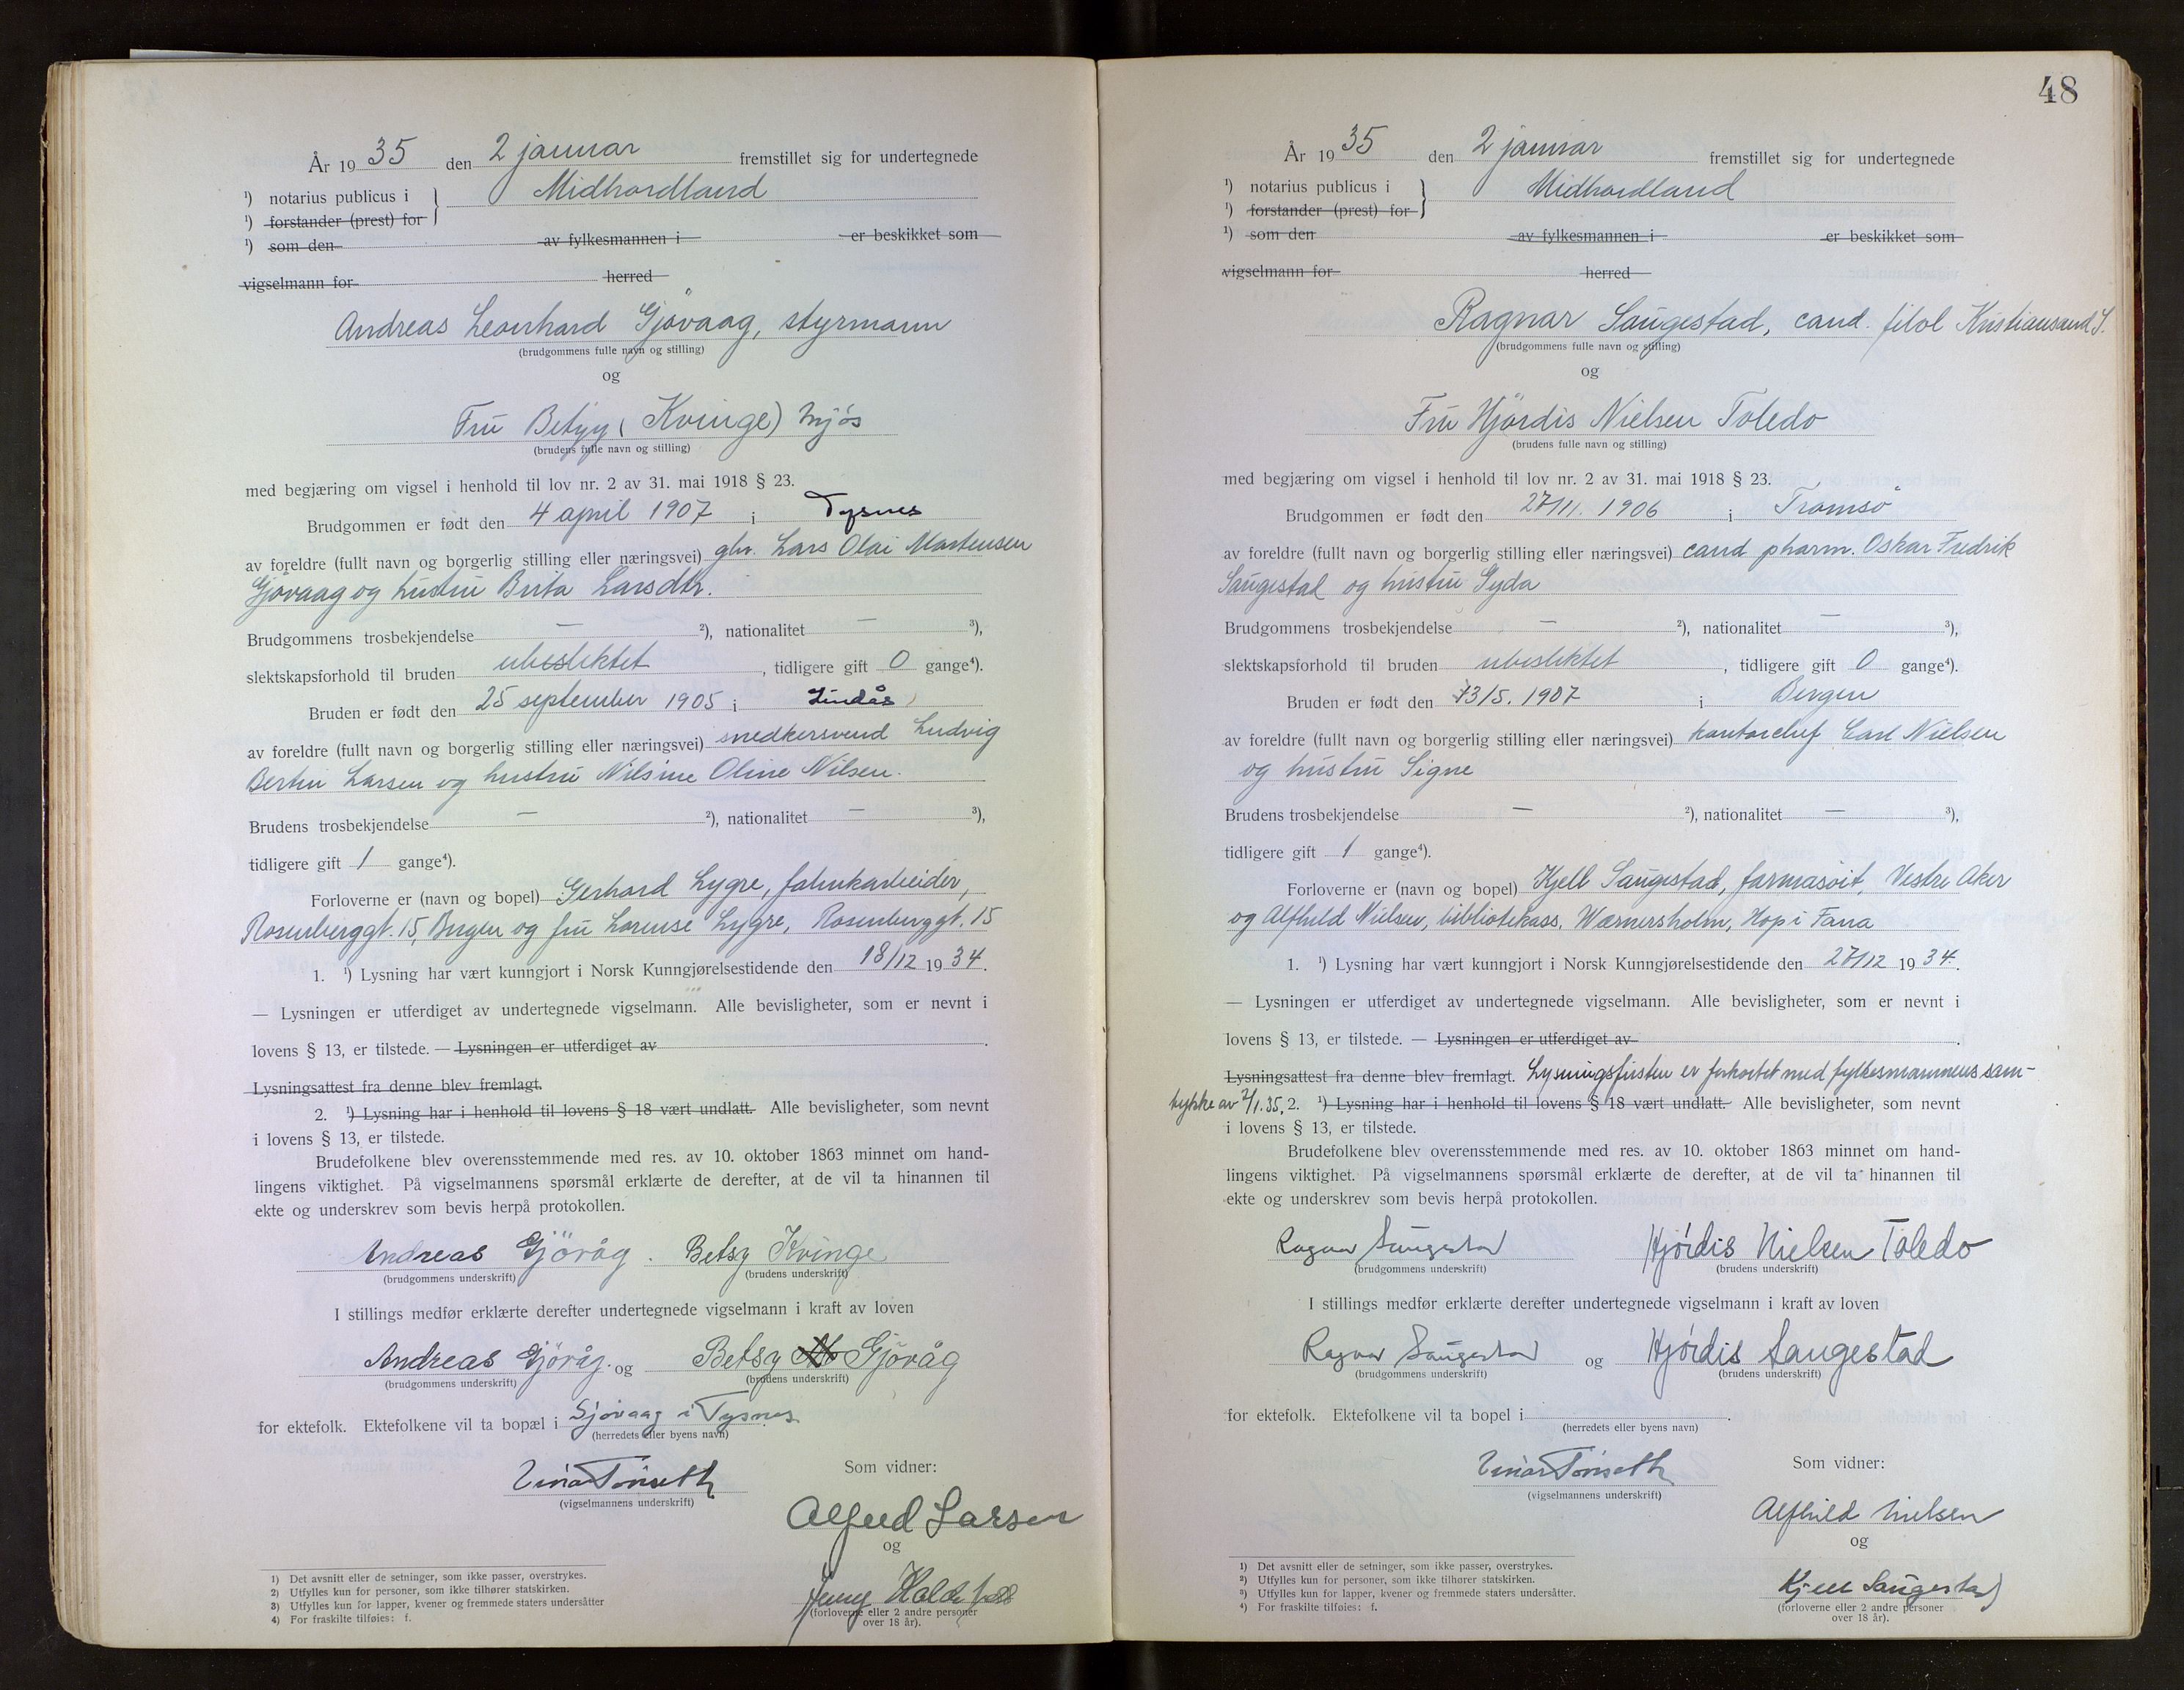 År 1935 den 2 januar fremstillet sig for undertegnede
¹) notarius publicus i } Midhordland
¹) forstander (prest) for
¹) som den av fylkesmannen i er beskikket som
vigselmann for herred
Andreas Leonhard Gjövaag, styrmann
(brudgommens fulle navn og stilling)
og
Fru Betzy (Kvinge) Mjøs
(brudens fulle navn og stilling)
med begjæring om vigsel i henhold til lov nr. 2 av 31. mai 1918 § 23.
Brudgommen er født den 4 april 1907 i Tysnes
av foreldre (fullt navn og borgerlig stilling eller næringsvei) gbr. Lars Olai Martensen
Gjövaag og hustru Brita Larsdtr.
Brudgommens trosbekjendelse — ²), nationalitet — ³),
slektskapsforhold til bruden ubeslektet, tidligere gift 0 gange⁴).
Bruden er født den 25 september 1905 i Lindås
av foreldre (fullt navn og borgerlig stilling eller næringsvei) snedkersvend Ludvig
Bertin Larsen og hustru Nilsine Oline Nilsen.
Brudens trosbekjendelse — ²), nationalitet — ³),
tidligere gift 1 gange⁴).
Forloverne er (navn og bopel) Gerhard Lygre, fabrikarbeider,
Rosenberggt. 15, Bergen og fru Lorense Lygre, Rosenberggt. 15
1. ¹) Lysning har vært kunngjort i Norsk Kunngjørelsestidende den 18/12 1934.
— Lysningen er utferdiget av undertegnede vigselmann. Alle bevisligheter, som er nevnt i
lovens § 13, er tilstede. — Lysningen er utferdiget av .
Lysningsattest fra denne blev fremlagt.
2. ¹) Lysning har i henhold til lovens § 18 vært undlatt. Alle bevisligheter, som nevnt
i lovens § 13, er tilstede.
Brudefolkene blev overensstemmende med res. av 10. oktober 1863 minnet om hand-
lingens viktighet. På vigselmannens spørsmål erklærte de derefter, at de vil ta hinannen til
ekte og underskrev som bevis herpå protokollen.
Andreas Gjövåg. Betsy Kvinge
(brudgommens underskrift) (brudens underskrift)
I stillings medfør erklærte derefter undertegnede vigselmann i kraft av loven
Andreas Gjövåg. og Betsy Gjövåg
(brudgommens underskrift) (brudens underskrift)
for ektefolk. Ektefolkene vil ta bopæl i Gjövaag i Tysnes
(herredets eller byens navn)
Einar Tönseth
(vigselmannens underskrift)
Som vidner:
Alfred Larsen
og
Jenny
(forloverne eller 2 andre personer
over 18 år).
1) Det avsnitt eller de setninger, som ikke passer, overstrykes.
2) Utfylles kun for personer, som ikke tilhører statskirken.
3) Utfylles kun for lapper, kvener og fremmede staters undersåtter
4) For fraskilte tilføies: f.
48
År 1935 den 2 januar fremstillet sig for undertegnede
¹) notarius publicus i } Midhordland
¹) forstander (prest) for
¹) som den av fylkesmannen i er beskikket som
vigselmann for herred
Ragnar Saugestad, cand. filol Kristiansand S.
(brudgommens fulle navn og stilling)
og
Fru Hjördis Nielsen Toledo
(brudens fulle navn og stilling)
med begjæring om vigsel i henhold til lov nr. 2 av 31. mai 1918 § 23.
Brudgommen er født den 27/11. 1906 i Tromsö
av foreldre (fullt navn og borgerlig stilling eller næringsvei) cand pharm. Oskar Fredrik
Saugestad og hustru Gyda
Brudgommens trosbekjendelse — ²), nationalitet — ³),
slektskapsforhold til bruden ubeslektet, tidligere gift 0 gange⁴).
Bruden er født den 13/5. 1907 i Bergen
av foreldre (fullt navn og borgerlig stilling eller næringsvei) kontorchef Carl Nielsen
og hustru Signe
Brudens trosbekjendelse — ²), nationalitet — ³),
tidligere gift 1 gange⁴).
Forloverne er (navn og bopel) Kjell Saugestad, farmasöit, Vestre Aker
og Alfhild Nielsen, bibliotekass. Wærnersholm, Hop i Fana
1. ¹) Lysning har vært kunngjort i Norsk Kunngjørelsestidende den 27/12 1934.
— Lysningen er utferdiget av undertegnede vigselmann. Alle bevisligheter, som er nevnt i
lovens § 13, er tilstede. — Lysningen er utferdiget av .
Lysningsattest fra denne blev fremlagt. Lysningsfristen er forkortet med fylkesmannens sam-
tykke av 2/1.35. 2. ¹) Lysning har i henhold til lovens § 18 vært undlatt. Alle bevisligheter, som nevnt
i lovens § 13, er tilstede.
Brudefolkene blev overensstemmende med res. av 10. oktober 1863 minnet om hand-
lingens viktighet. På vigselmannens spørsmål erklærte de derefter, at de vil ta hinannen til
ekte og underskrev som bevis herpå protokollen.
Ragnar Saugestad Hjördis Nielsen Toledo
(brudgommens underskrift) (brudens underskrift)
I stillings medfør erklærte derefter undertegnede vigselmann i kraft av loven
Ragnar Saugestad og Hjördis Saugestad
(brudgommens underskrift) (brudens underskrift)
for ektefolk. Ektefolkene vil ta bopel i .
(herredets eller byens navn)
Einar Tönseth
(vigselmannens underskrift)
Som vidner:
Alfhild Nielsen
og
Kjell Saugestad
(forloverne eller 2 andre personer
over 18 år).
1) Det avsnitt eller de setninger, som ikke passer, overstrykes.
²) Utfylles kun for personer, som ikke tilhører statskirken.
³) Utfylles kun for lapper, kvener og fremmede staters undersåtter.
⁴) For fraskilte tilføies: f.